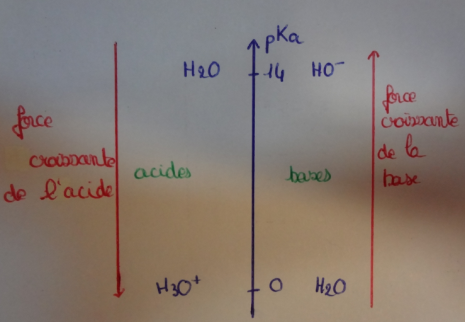 pKa
H2O 14 HO-
force
croissante
de l'acide
acides
bases
force
croissante
de la
base
H3O+ 0 H2O